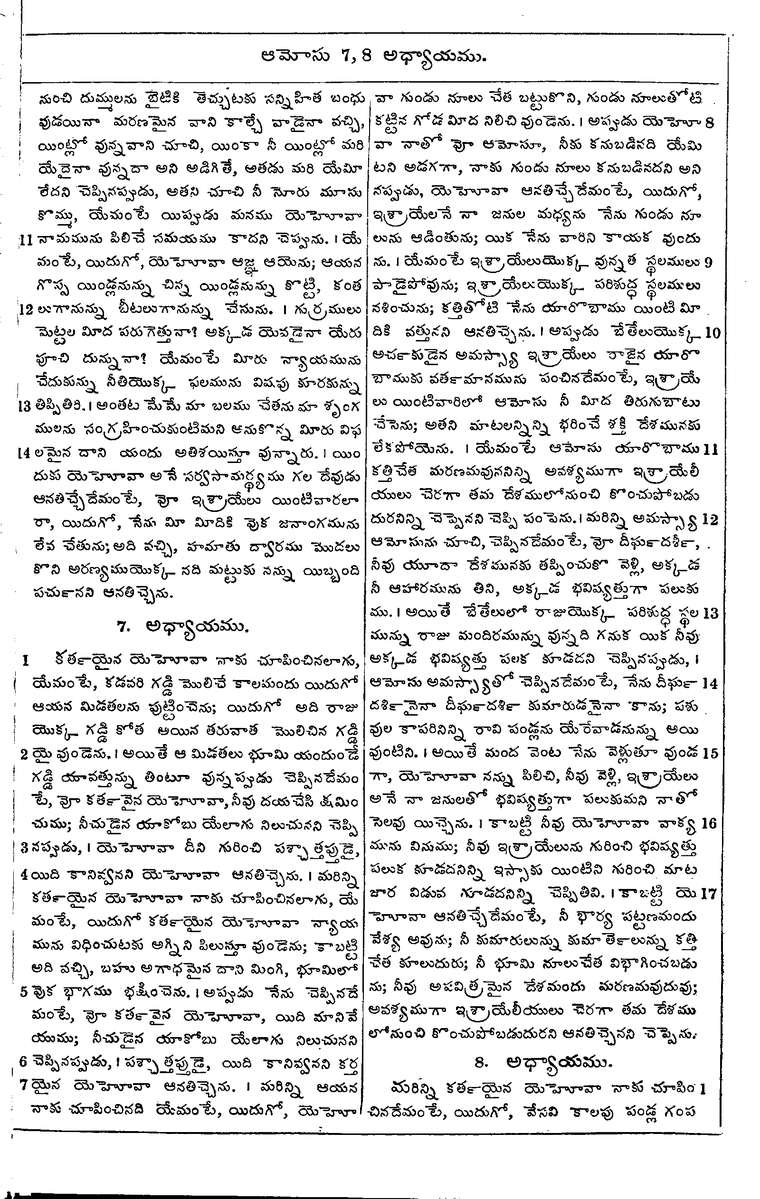 ఆమోసు 7, 8 అధ్యాయము.
నుంచి దుమ్ములను బైటికి తెచ్చుటకు సన్నిహిత బంధు
వుడయినా మరణమైన వాని కాల్చే వాడైనా వచ్చి,
యింట్లో వున్నవాని చూచి, యింకా నీ యింట్లో మరి
యేదైనా వున్నదా అని అడిగితే, అతడు మరి యేమీ
లేదని చెప్పినప్పుడు, అతని చూచి నీ నోరు మూసు
కొమ్ము, యేమంటే యిప్పుడు మనము యెహోవా
11 నామమును పిలిచే సమయము కాదని చెప్పును. । యే
మంటే, యిదుగో, యెహోవా ఆజ్ఞ ఆయెను; ఆయన
గొప్ప యిండ్లనున్ను చిన్న యిండ్లనున్ను కొట్టి, కంత
12 లుగానున్ను బీటలుగానున్ను చేసును. । గుర్రములు
మెట్టల మీద పరుగెత్తునా? అక్కడ యెవడైనా యేరు
పూచి దున్నునా? యేమంటే మీరు న్యాయమును
చేదుకున్ను నీతియొక్క ఫలమును విషపు కూరకున్ను
13 తిప్పితిరి. । అంతట మేమే మా బలము చేతను మా శృంగ
ములను సంగ్రహించుకుంటిమని అనుకొన్న మీరు విఫ
14 లమైన దాని యందు అతిశయిస్తూ వున్నారు. । యిం
దుకు యెహోవా అనే సర్వసామర్థ్యము గల దేవుడు
ఆనతిచ్చేదేమంటే, వో ఇశ్రాయేలు యింటివారలా
రా, యిదుగో, నేను మీ మీదికి వొక జనాంగమును
లేవ చేతును; అది వచ్చి, హమాతు ద్వారము మొదలు
కొని అరణ్యముయొక్క నది మట్టుకు నన్ను యిబ్బంది
పచుానని ఆనతిచ్చెను.
7. అధ్యాయము.
1 కతాయైన యెహోవా నాకు చూపించినలాగు,
యేమంటే, కడవరి గడ్డి మొలిచే కాలమందు యిదుగో
ఆయన మిడతలను పుట్టించెను; యిదుగో అది రాజు
యొక్క గడ్డి కోత అయిన తరువాత మొలిచిన గడ్డి
2 యై వుండెను. । అయితే ఆ మిడతలు భూమి యందుండే
గడ్డి యావత్తున్ను తింటూ వున్నప్పుడు చెప్పినదేమం
టే, వో కతావైన యెహోవా, నీవు దయచేసి క్షమిం
చుము; నీచుడైన యాకోబు యేలాగు నిలుచునని చెప్పి
3 నప్పుడు, । యెహోవా దీని గురించి పశ్చాత్తప్తుడై,
4 యిది కానివ్వనని యెహోవా ఆనతిచ్చెను. । మరిన్ని
కతాయైన యెహోవా నాకు చూపించినలాగు, యే
మంటే, యిదుగో కతాయైన యెహోవా న్యాయ
మును విధించుటకు అగ్నిని పిలుస్తూ వుండెను; కాబట్టి
అది వచ్చి, బహు అగాధమైన దాని మింగి, భూమిలో
5 వొక భాగము భక్షించెను. । అప్పుడు నేను చెప్పినదే
మంటే, వో కతావైన యెహోవా, యిది మానివే
యుము; నీచుడైన యాకోబు యేలాగు నిలుచునని
6 చెప్పినప్పుడు, । పశ్చాత్తప్తుడై, యిది కానివ్వనని కర్త
7 యైన యెహోవా ఆనతిచ్చెను. । మరిన్ని ఆయన
నాకు చూపించినది యేమంటే, యిదుగో, యెహో
వా గుండు నూలు చేత బట్టుకొని, గుండు నూలుతోటి
కట్టిన గోడ మీద నిలిచి వుండెను. । అప్పుడు యెహో 8
వా నాతో వో ఆమోసూ, నీకు కనుబడినది యేమి
టని అడగగా, నాకు గుండు నూలు కనుబడినదని అని
నప్పుడు, యెహోవా ఆనతిచ్చేదేమంటే, యిదుగో,
ఇశ్రాయేలనే నా జనుల మధ్యను నేను గుండు నూ
లును ఆడింతును; యిక నేను వారిని కాయక వుందు
ను. । యేమంటే ఇశ్రాయేలుయొక్క వున్నత స్థలములు 9
పాడైపోవును; ఇశ్రాయేలుయొక్క పరిశుద్ధ స్థలములు
నశించును; కత్తితోటి నేను యారొబాము యింటి మీ
దికి వత్తునని ఆనతిచ్చెను. । అప్పుడు బేతేలుయొక్క 10
అచాకుడైన అమస్స్యా ఇశ్రాయేలు రాజైన యారొ
బాముకు వతామానమును పంచినదేమంటే, ఇశ్రాయే
లు యింటివారిలో ఆమోసు నీ మీద తిరుగుబాటు
చేసెను; అతని మాటలన్నిన్ని భరించే శక్తి దేశమునకు
లేకపోయెను. । యేమంటే ఆమోసు యారొబాము 11
కత్తిచేత మరణమవుననిన్ని అవశ్యముగా ఇశ్రాయేలీ
యులు చెరగా తమ దేశములోనుంచి కొంచుపోబడు
దురనిన్ని చెప్పెనని చెప్పి పంపెను. । మరిన్ని అమస్స్యా 12
ఆమోసును చూచి, చెప్పినదేమంటే, వో దీఘాదశీా,
నీవు యూదా దేశమునకు తప్పించుకొ వెళ్లి, అక్కడ
నీ ఆహారమును తిని, అక్కడ భవిష్యత్తుగా పలుకు
ము. । అయితే బేతేలులో రాజుయొక్క పరిశుద్ధ స్థల 13
మున్ను రాజు మందిరమున్ను వున్నది గనుక యిక నీవు
అక్కడ భవిష్యత్తు పలక కూడదని చెప్పినప్పుడు, ।
ఆమోసు అమస్స్యాతో చెప్పినదేమంటే, నేను దీఘా 14
దశిానైనా దీఘాదశిా కుమారుడనైనా కాను; పశు
వుల కాపరినిన్ని రావి పండ్లను యేరేవాడనున్ను అయి
వుంటిని. । అయితే మంద వెంట నేను వెళ్లుతూ వుండ 15
గా, యెహోవా నన్ను పిలిచి, నీవు వెళ్లి, ఇశ్రాయేలు
అనే నా జనులతో భవిష్యత్తుగా పలుకుమని నాతో
సెలవు యిచ్చెను. । కాబట్టి నీవు యెహోవా వాక్య 16
మును వినుము; నీవు ఇశ్రాయేలును గురించి భవిష్యత్తు
పలుక కూడదనిన్ని ఇస్సాకు యింటిని గురించి మాట
జార విడువ గూడదనిన్ని చెప్పితివి. । కాబట్టి యె 17
హోవా ఆనతిచ్చేదేమంటే, నీ భార్య పట్టణమందు
వేశ్య అవును; నీ కుమారులున్ను కుమాతెాలున్ను కత్తి
చేత కూలుదురు; నీ భూమి నూలుచేత విభాగించబడు
ను; నీవు అపవిత్రమైన దేశమందు మరణమవుదువు;
అవశ్యముగా ఇశ్రాయేలీయులు చెరగా తమ దేశము
లోనుంచి కొంచుపోబడుదురని ఆనతిచ్చెనని చెప్పెను.
8. అధ్యాయము.
మరిన్ని కతాయైన యెహోవా నాకు చూపిం 1
చినదేమంటే, యిదుగో, వేసవి కాలపు పండ్ల గంప